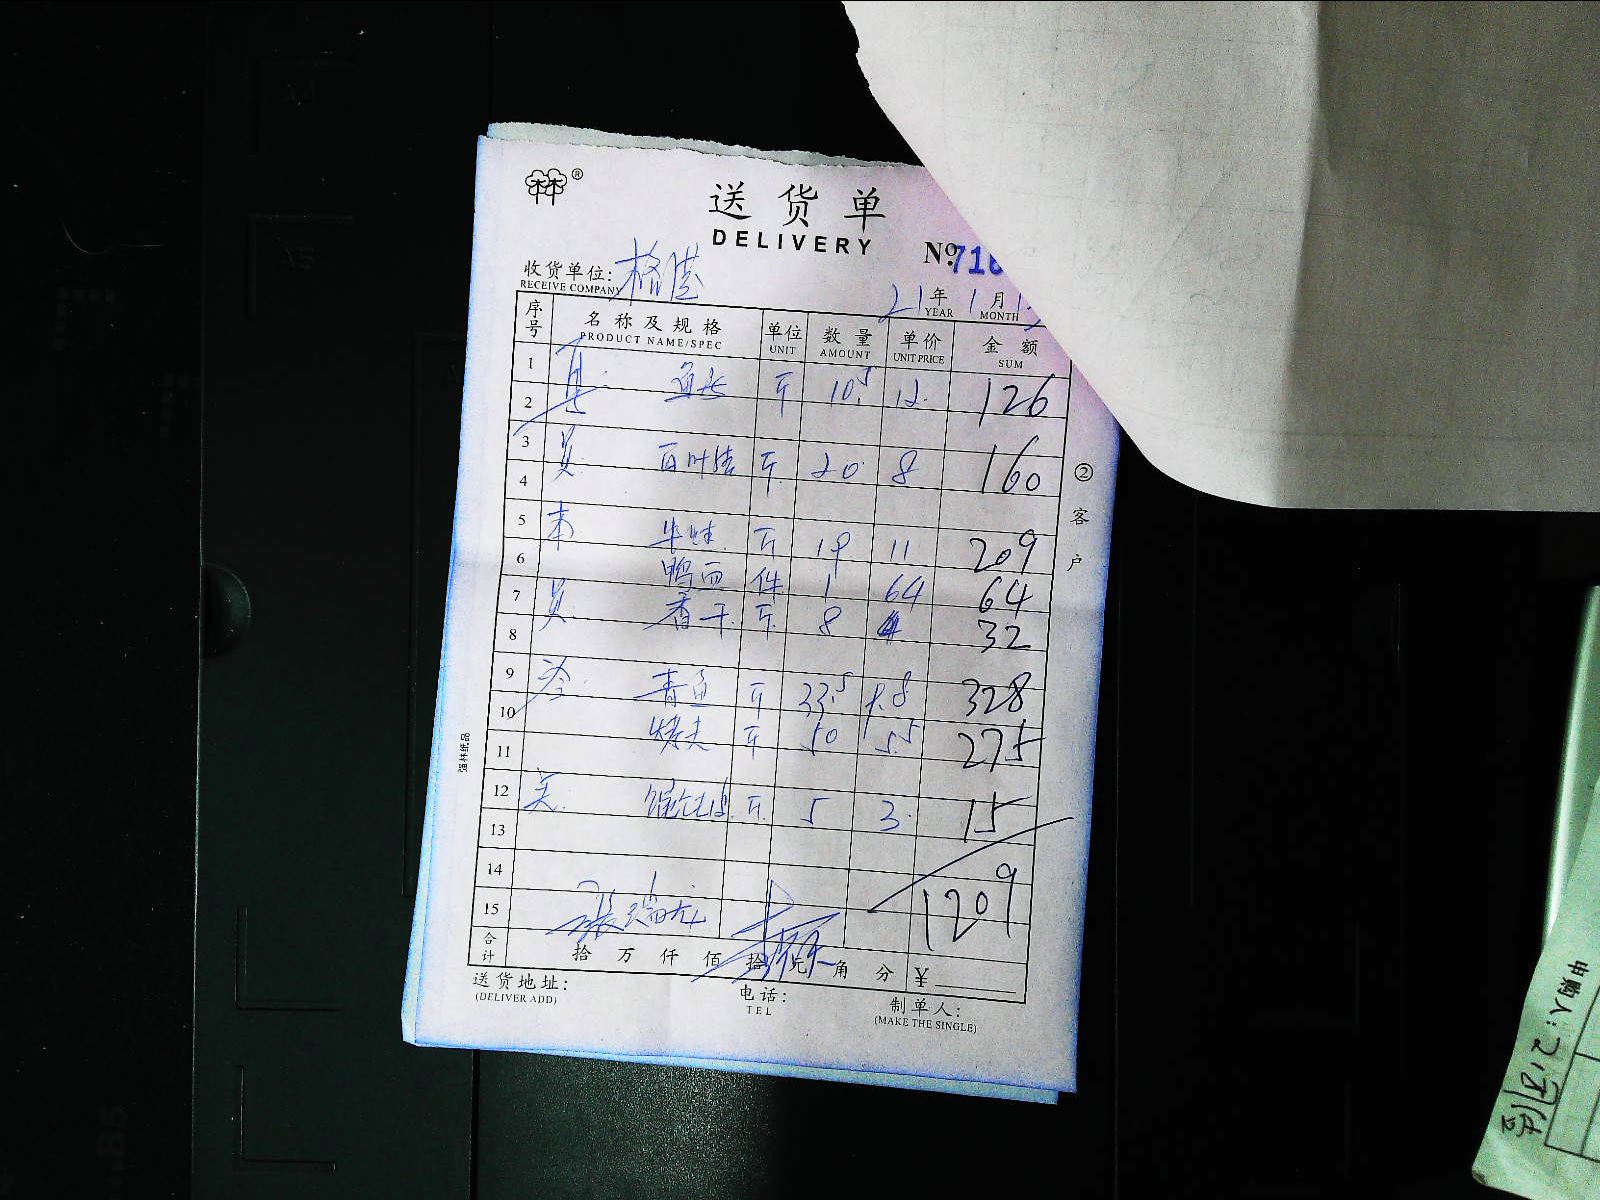 林®
送货单
DELIVERY
No716
收货单位:
RECEIVE COMPANY
21年 1月
YEAR MONTH
序号 名称及规格 单位 数量 单价 金额
PRODUCT NAME/SPEC UNIT AMOUNT UNIT PRICE SUM
1 斤 10.5 12. 126
2
3 百叶结 斤 20 8 160
4
5 斤 19 11 209
6 鸭血 件 1 64 64
7 香干 斤 8 4 32
8
9 冷 青鱼 斤 33.5 9.8 328
10 烤夫 斤 50 5.5 275
11
12 斤 5 3 15
13
14 1209
15
合计 拾 万 仟 佰 拾 元 角 分 ¥
送货地址:
(DELIVER ADD)
电话:
TEL
制单人:
(MAKE THE SINGLE)
②客户
强林纸品
申购人:
A4
A5
B5